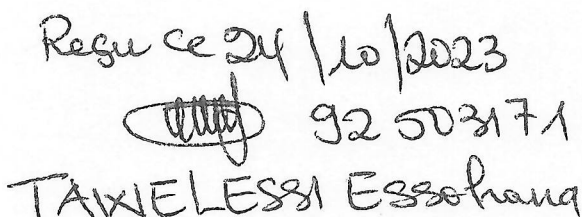 Reçu ce 24/10/2023
92503171
TAWELESSI Essohana